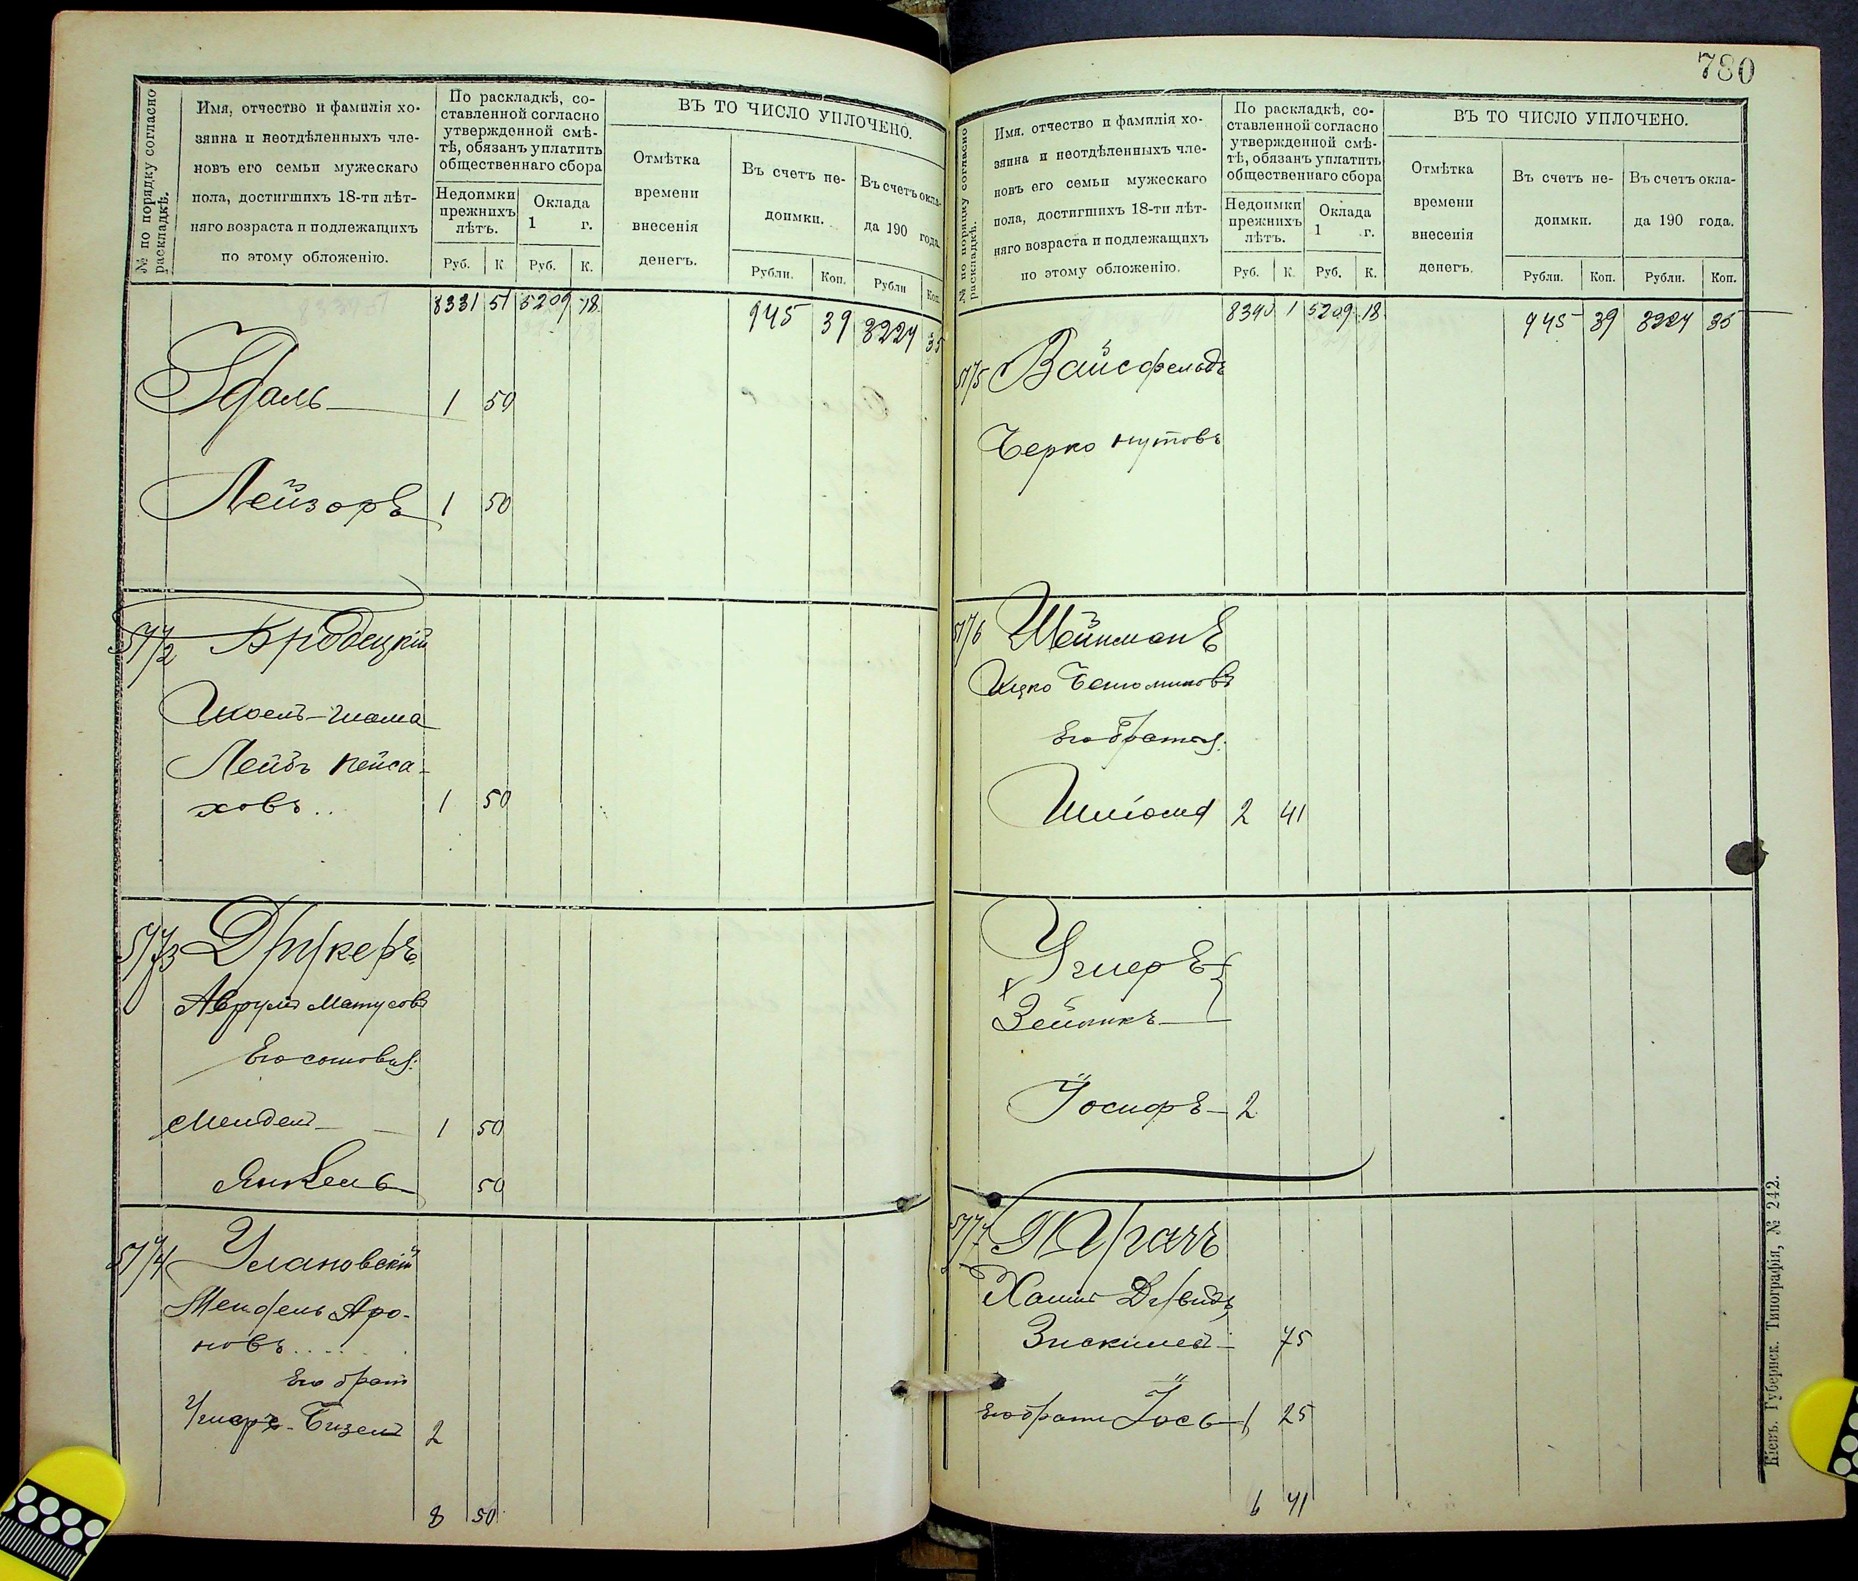 780
№ по порядку согласно раскладкѣ.
Имя, отчество и фамилія хо-
зяина и неотдѣленныхъ чле-
новъ его семьи мужескаго
пола, достигшихъ 18-ти лѣт-
няго возраста и подлежащихъ
по этому обложенію.
По раскладкѣ, со-
ставленной согласно
утвержденной смѣ-
тѣ, обязанъ уплатить
общественнаго сбора
Недоимки прежнихъ лѣтъ.
Оклада 1 г.
Руб. К. Руб. К.
ВЪ ТО ЧИСЛО УПЛОЧЕНО.
Отмѣтка
времени
внесенія
денегъ.
Въ счетъ не-
доимки.
Въ счетъ окла-
да 190 года.
Рубли. Коп. Рубли Коп.
8331 51 5209 18 945 39 3224 35
Эфаль 1 50
Лейзоръ 1 50
5772 Бродецкій
Иоель-шама
Лейбъ Пейса-
ховъ.. 1 50
5773 Друкеръ
Аврумъ Матусовъ
Его сыновья:
Мендель 1 50
Янкель 50
5774 Улановскій
Мендель Аро-
новъ.....
Его братъ
Умеръ-Бизель 2
8 50
№ по порядку согласно раскладкѣ.
Имя, отчество и фамилія хо-
зяина и неотдѣленныхъ чле-
новъ его семьи мужескаго
пола, достигшихъ 18-ти лѣт-
няго возраста и подлежащихъ
по этому обложенію.
По раскладкѣ, со-
ставленной согласно
утвержденной смѣ-
тѣ, обязанъ уплатить
общественнаго сбора
Недоимки прежнихъ лѣтъ.
Оклада 1 г.
Руб. К. Руб. К.
ВЪ ТО ЧИСЛО УПЛОЧЕНО.
Отмѣтка
времени
внесенія
денегъ.
Въ счетъ не-
доимки.
Въ счетъ окла-
да 190 года.
Рубли. Коп. Рубли. Коп.
8340 1 5209 18 945 39 3224 35
5775 Вайсфельдъ
Берко Нутовъ
5776 Шейнманъ
Ицко Беньминовъ
Его братья:
Шліома 2 41
Умеръ
Зейликъ
Іосифъ 2
5777 Ткачъ
Хаимъ Дувидъ
Зискинъ 75
Его братъ Іось 1 25
6 41
Кіевъ. Губернск. Типографія, № 242.